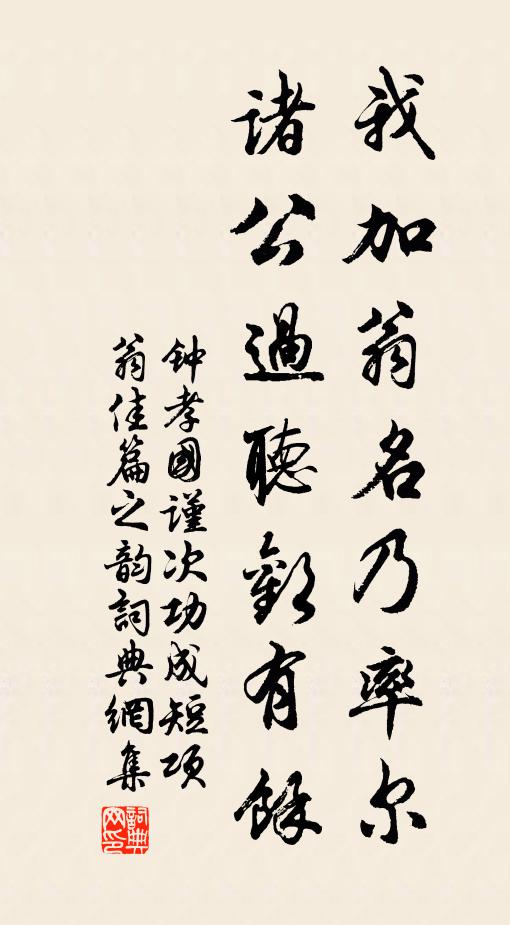 我加翁名乃率尔
诸公過聽歡有餘
钟孝國谨次功成短项
翁佳篇之韵詞典網集
詞典網印